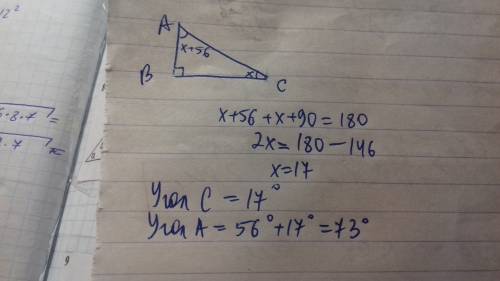 12²
A
x+56
B
x
C
x+56+x+90=180
2x=180-146
x=17
Угол C = 17°
Угол A = 56°+17°=73°
9